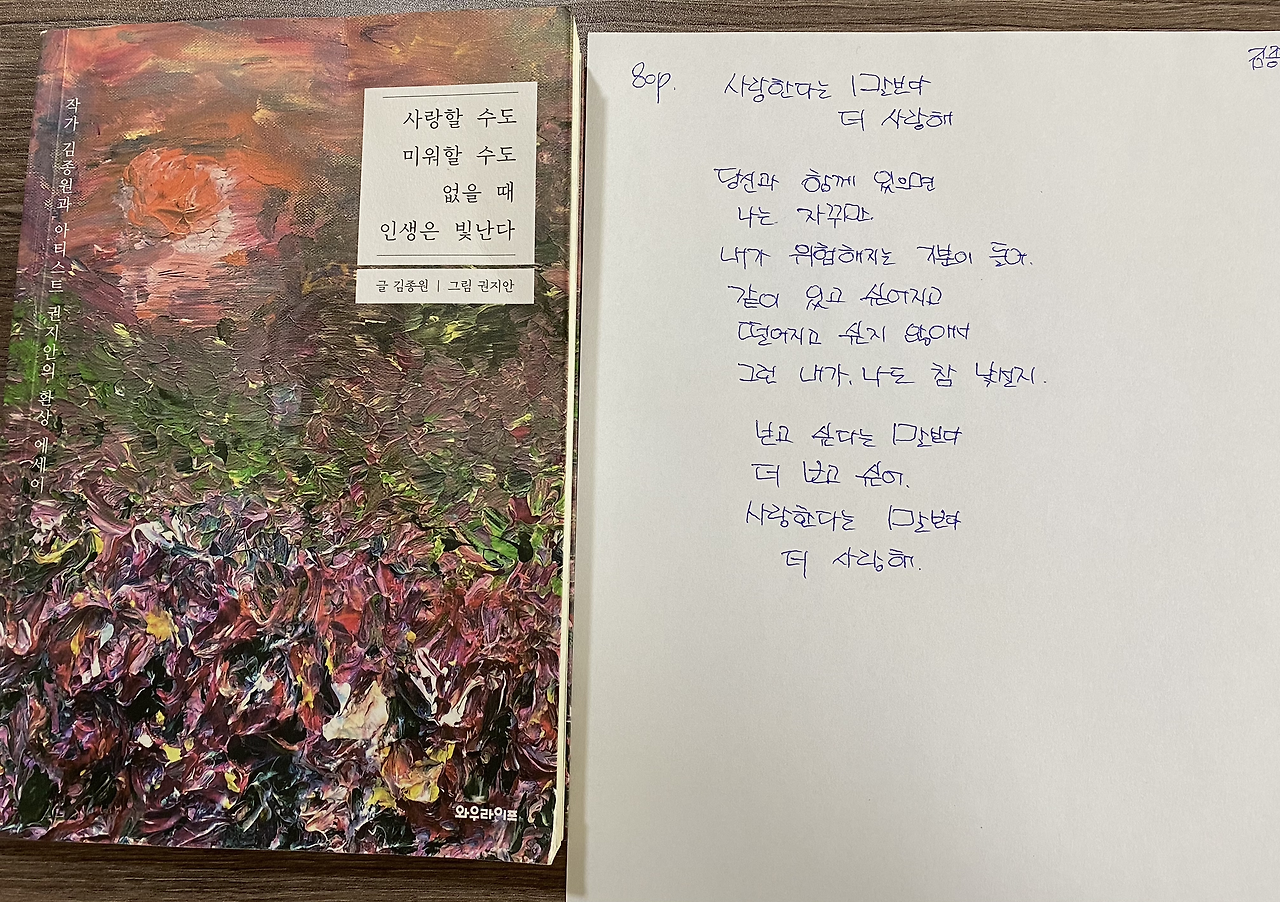 작가 김종원과 아티스트 권지안의 환상 에세이
사랑할 수도
미워할 수도
없을 때
인생은 빛난다
글 김종원 | 그림 권지안
와우라이프
80p.
김종
사랑한다는 말보다
더 사랑해
당신과 함께 있으면
나는 자꾸만
내가 위험해지는 기분이 들어.
같이 있고 싶어지고
떨어지고 싶지 않아서
그런 내가, 나도 참 낯설지.
보고 싶다는 말보다
더 보고 싶어.
사랑한다는 말보다
더 사랑해.